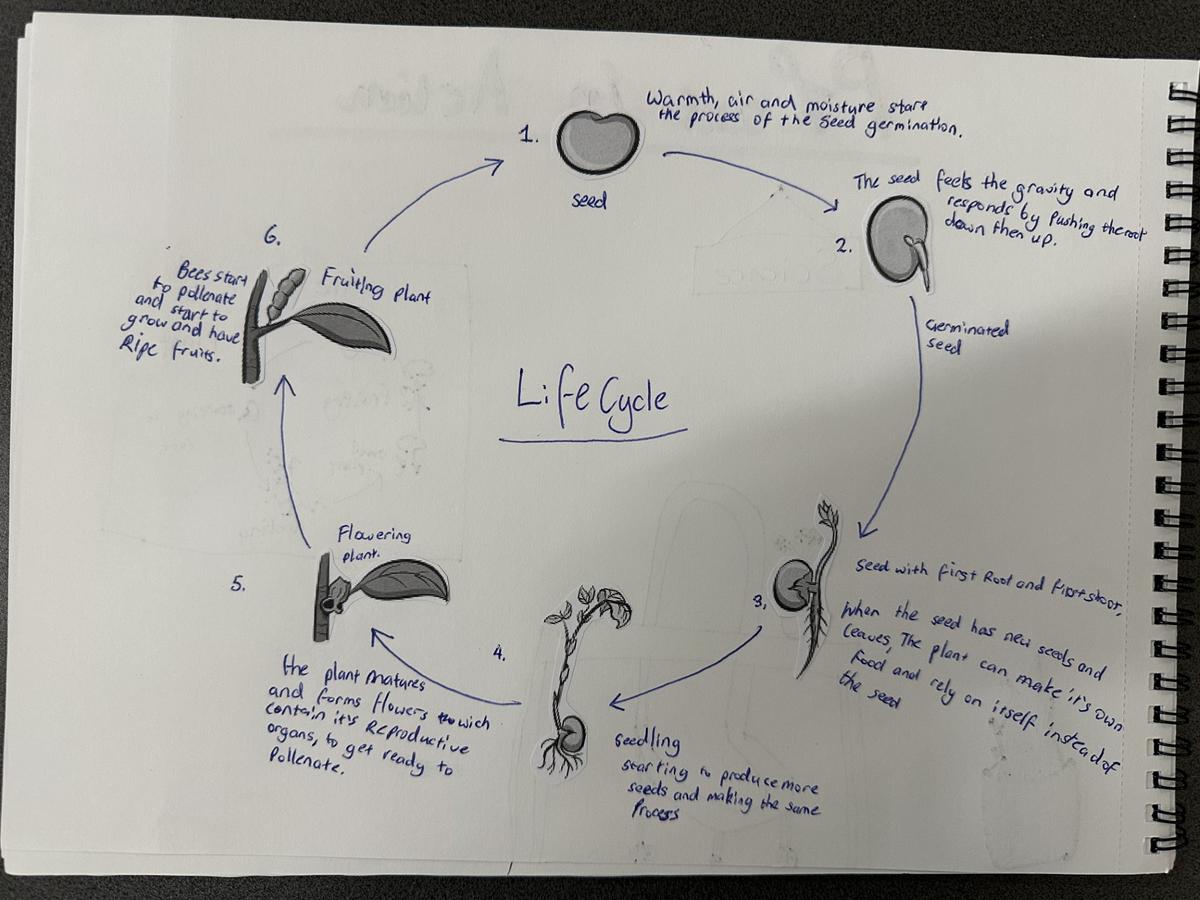 Life Cycle
1.
Warmth, air and moisture start
the process of the seed germination.
seed
2.
The seed feels the gravity and
responds by pushing the root
down then up.
Germinated
seed
3.
Seed with first Root and first shoot,
when the seed has new seeds and
leaves, The plant can make it's own
food and rely on itself instead of
the seed
4.
Seedling
starting to produce more
seeds and making the same
Process
5.
Flowering
plant.
the plant matures
and forms flowers wich
contain it's Reproductive
organs, to get ready to
Pollenate.
6.
Fruiting plant
Bees start
to pollenate
and start to
grow and have
Ripe fruits.